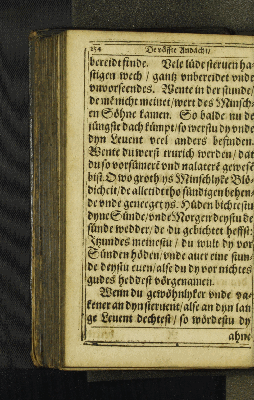 254 De vöffte Andacht/
bereidt sinde. Vele lüde steruen ha-
stigen wech / gantz vnbereidet vnde
vnvorseendes. Wente in der stunde/
de mē nicht meinet/wert des Minsch-
en Söhne kamen. So balde nu de
jüngste dach kümpt/so werstu dy vnde
dyn Leuent veel anders befunden.
Wente du werst trurich werden/dat
du so vorsümet vnd nalatern gewesē
bist. O wo groth ys Minschlyke Blö-
dicheit/de alletidt tho sündigen behen-
de vnde geneeget ys. Hüden bichtestu
dyne Sünde/vnde Morgen deystu de
sünde wedder/de du gebichtet heffst:
Itzundes meinestu / du wult dy vor
Sünden höden/vnde auer eine stun-
de deystu euen/alse du dy vor nichtes
gudes heddest vörgenamen.
Wenn du gewöhnlyker vnde va-
kener an dyn steruent/alse an dyn lan-
ge Leuent dechtest / so wördestu dy
ahne